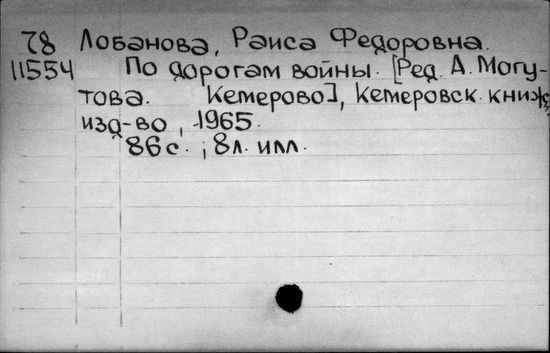 78 Лобанова, Раиса Федоровна.
11554 По дорогам войны. [Ред. А. Могу-
това. Кемерово], Кемеровск. книж.
изд-во, 1965.
86 с. ; 8 л. илл.